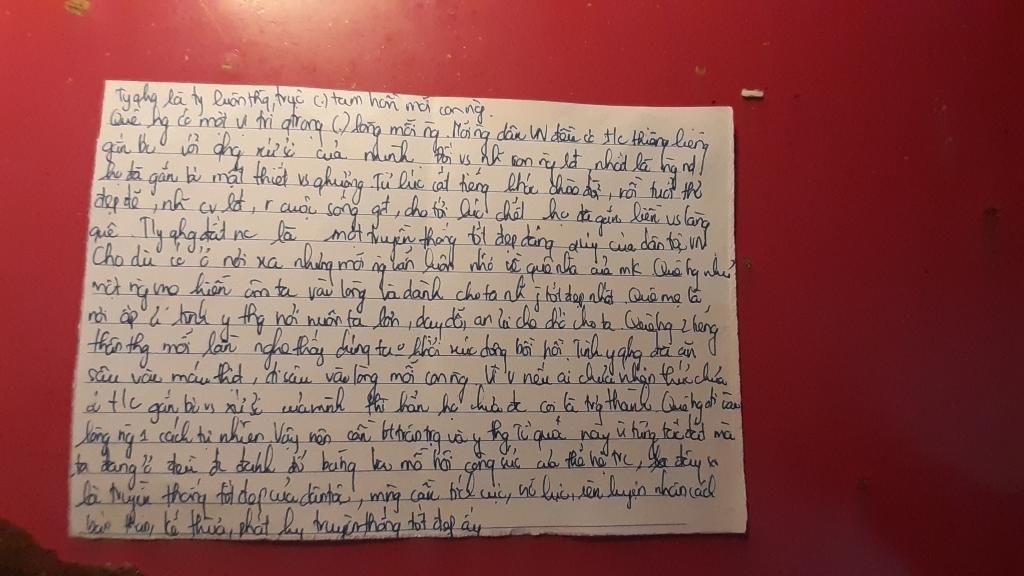 Ty qhg là ty luôn thg trực (.) tâm hồn mỗi con ng.
Quê hg có một vị trí qtrong (.) lòng mỗi ng. Mỗi ng dân VN đều có t/c thiêng liêng
gắn bó với qhg xứ sở của mình. Đối vs nh con ng lđ, nhất là ng nd,
họ đã gắn bó mật thiết vs qhương. Từ lúc cất tiếng khóc chào đời, rồi tuổi thơ
đẹp đẽ, nh cv lđ, r cuộc sống gđ, cho tới lúc chết họ đã gắn liền vs làng
quê. Ty qhg đất nc là một truyền thống tốt đẹp đáng quý của dân tộc VN
Cho dù có ở nơi xa nhưng mỗi ng vẫn luôn nhớ về quê nhà của mk. Quê hg như
một ng mẹ hiền ôm ta vào lòng và dành cho ta nh j tốt đẹp nhất. Quê mẹ là
nơi ấp ủ tình y thg nơi nuôn ta lớn, dạy dỗ, an ủi che chở cho ta. Quê hg 2 tiếng
thân thg mỗi lần nghe thấy chúng ta o khỏi xúc động bồi hồi. Tình y qhg đã ăn
sâu vào máu thịt, đi sâu vào lòng mỗi con ng. Vì v nếu ai chưa nhận thức
t/c gắn bó vs xứ sở của mình thì hẳn họ chưa đc coi là trg thành. Quê hg đi vào
lòng ng 1 cách tự nhiên. Vậy nên cần bt trân trọng và y thg Tổ quốc này vì từng tấc đất mà
ta đang ở đều đc đánh đổ bằng mồ hôi công sức của thế hệ trc,
là truyền thống tốt đẹp của dân tộc, mng cần tích cực, nỗ lực, rèn luyện nhân cách
bản thân, kế thừa, phát huy truyền thống tốt đẹp ấy